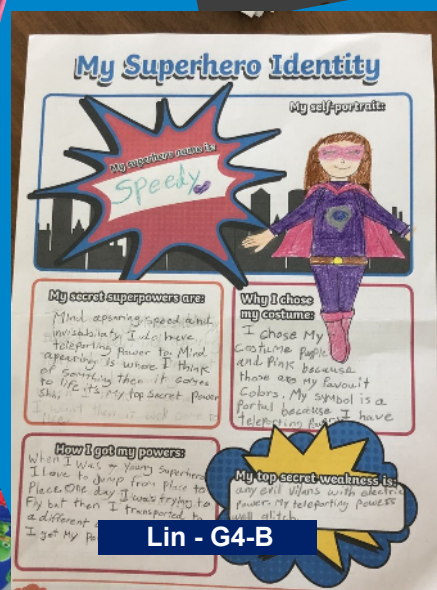 My Superhero Identity
My superhero name is:
Speedy
My self-portrait:
My secret superpowers are:
Mind apearing, speed and
invisabilaty I do have
teleporting Power to Mind
apearing is where I think
of something then it comes
to life it's My top secret Power
Why I chose
my costume:
I chose My
Costume Puple
and Pink because
those are My favouit
Colors. My symbol is a
Portal because I have
teleporting
How I got my powers:
When I Was a young Superhero
I love to Jump from Place to
Place. One day I was trying to
Fly but than I transported to
a different
I get My
My top secret weakness is:
any evil villans with electric
Power. My teleporting powers
will glitch.
Lin - G4-B